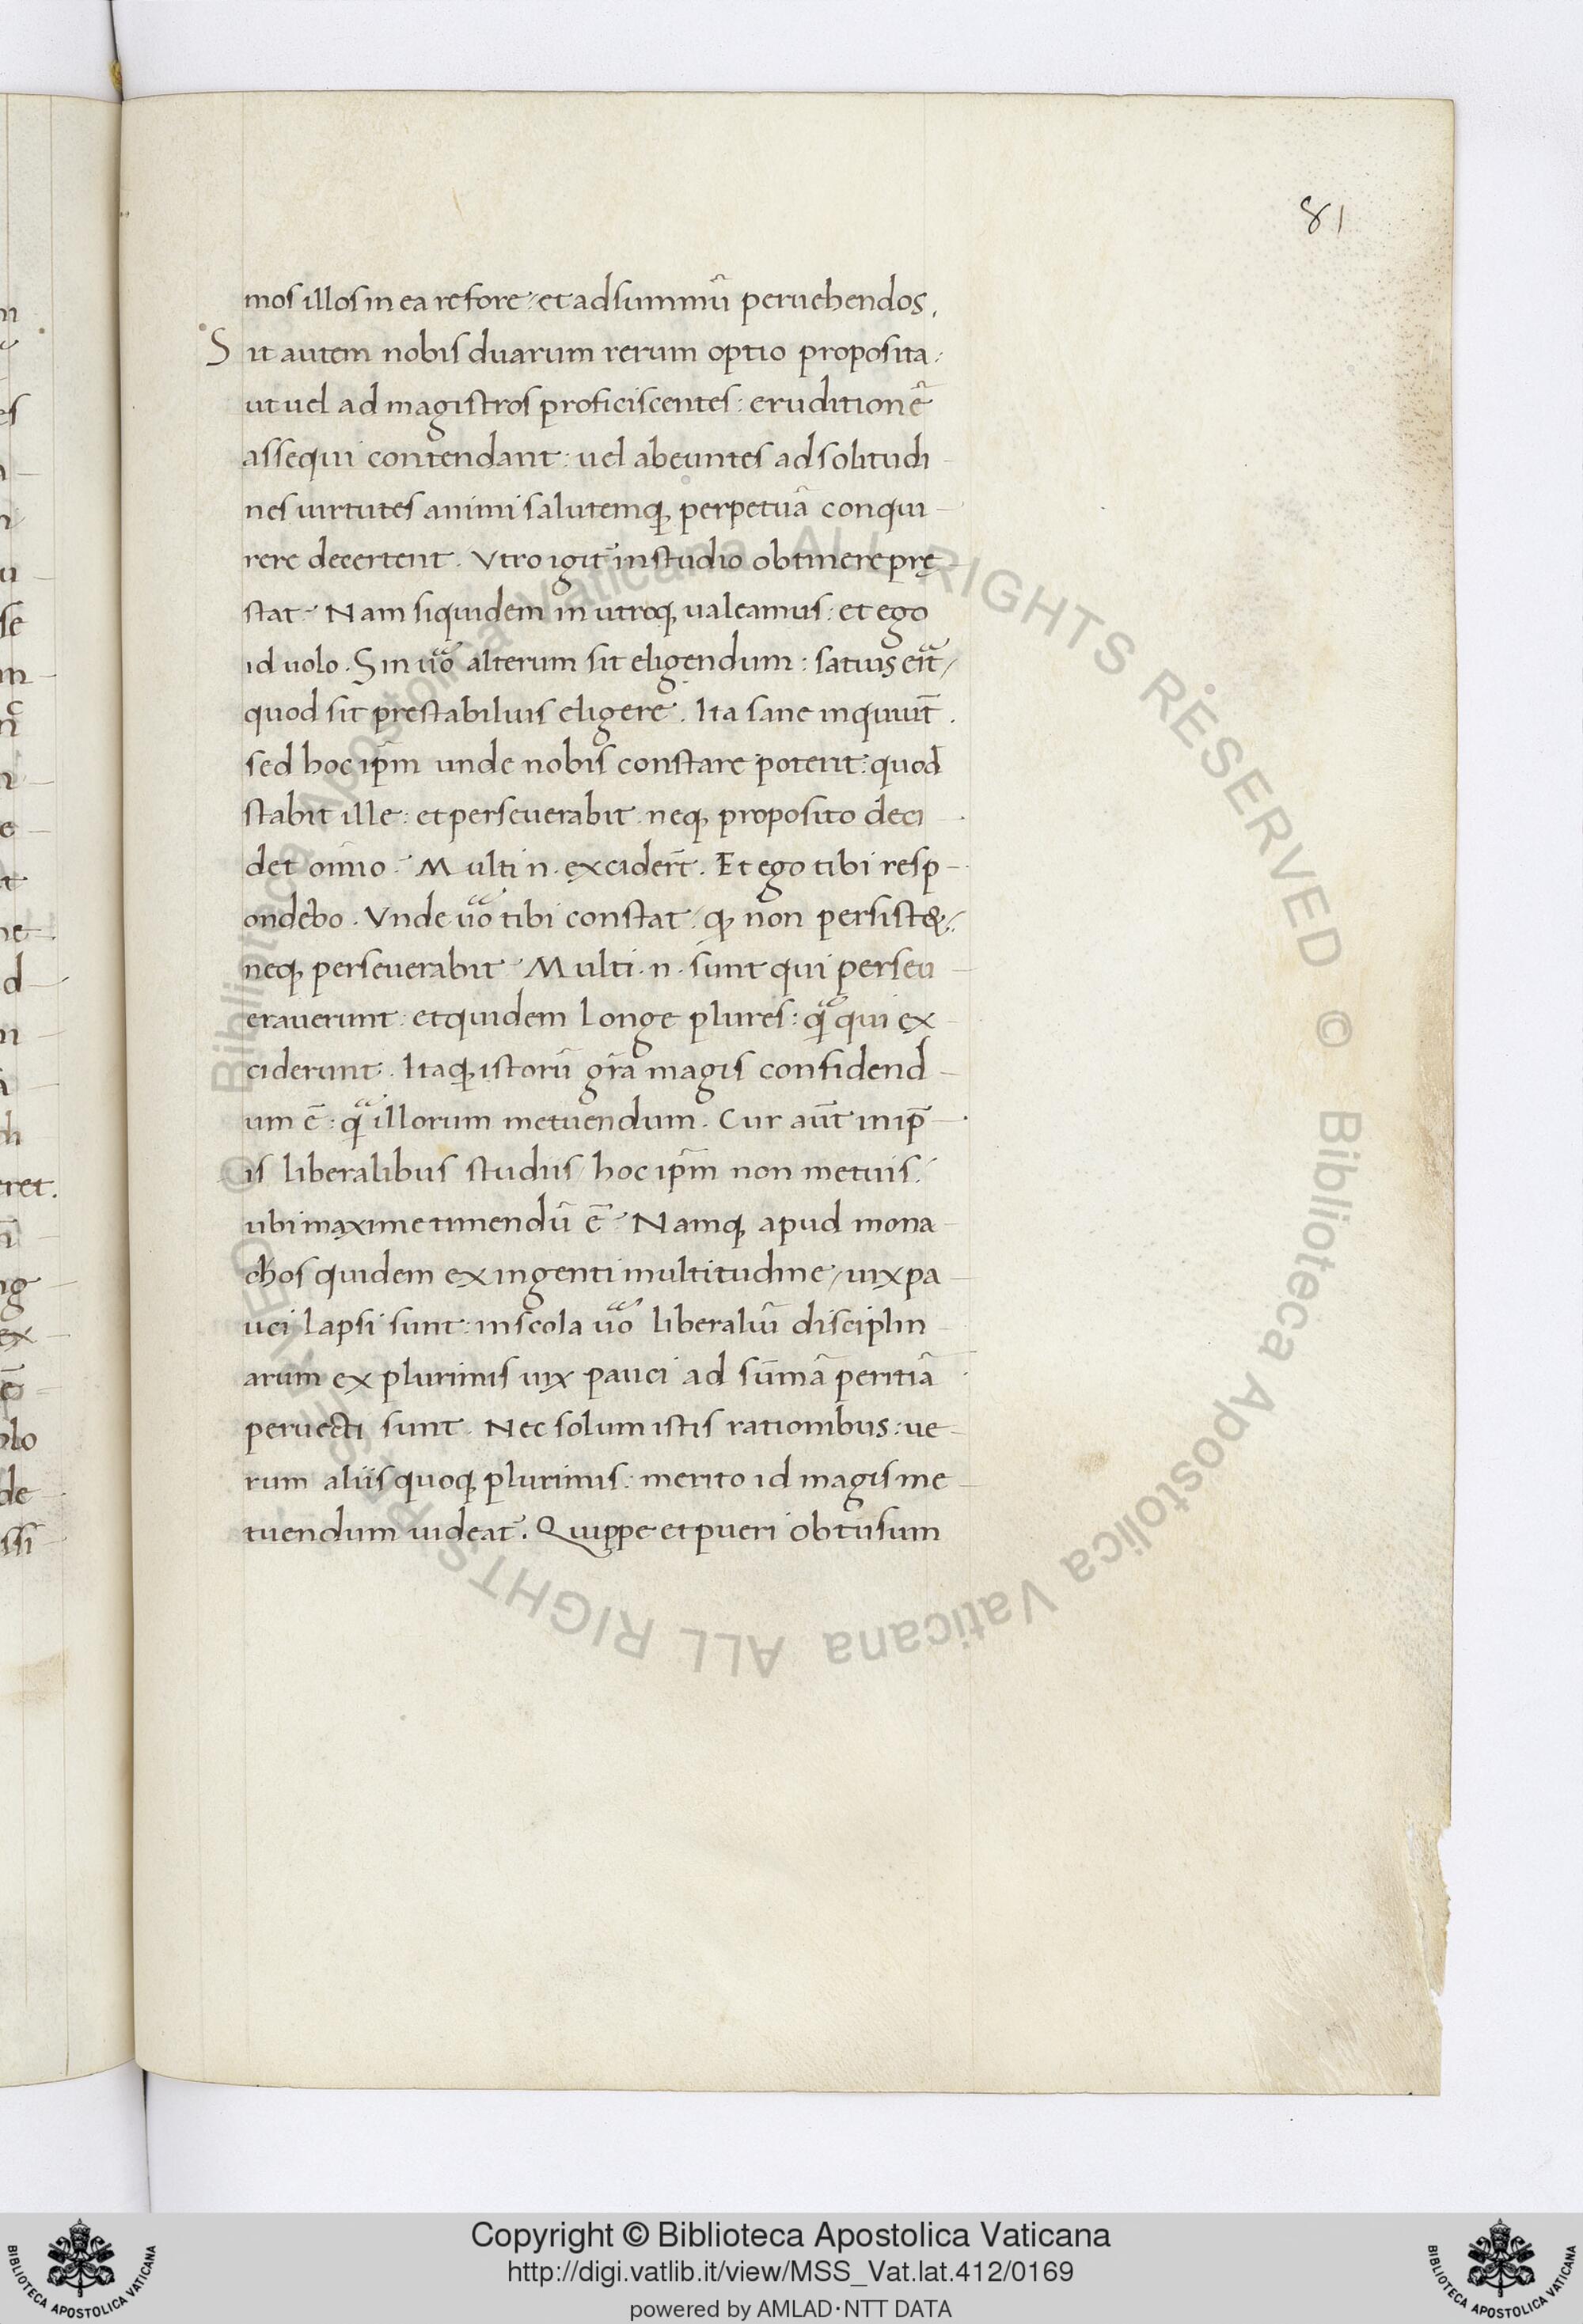 81
mos illos in ea re fore: et ad summũ peruehendos.
Sit autem nobis duarum rerum optio proposita:
ut uel ad magistros proficiscentes: eruditionẽ
assequi contendant: uel abeuntes ad solitudi
nes uirtutes animi salutemq; perpetuã conqui
rere decertent. Vtro igit̃ in studio obtinere prę
stat: Nam siquidem in utroq; ualeamus: et ego
id uolo. Sin uõ alterum sit eligendum: satius erit/
quod sit prestabilius eligere. Ita sane inquiũt.
sed hoc ip̃m unde nobis constare poterit: quod
stabit ille: et perseuerabit. neq; proposito deci
det om̃io: Multi n. excidert̃. Et ego tibi resp
ondebo. Vnde uõ tibi constat/ q; non persist&:
neq; perseuerabit: Multi .n. sunt qui perseu
erauerunt: et quidem longe plures: q̃ qui ex
ciderunt. Itaq; istorũ gr̃a magis confidend
um ẽ: q̃ illorum metuendum. Cur aũt in ip̃
is liberalibus studiis/ hoc ip̃m non metuis:
ubi maxime timendũ ẽ: Namq; apud mona
chos quidem ex ingenti multitudine/ uix pa
uci lapsi sunt: in scola uõ liberaliũ disciplin
arum ex plurimis uix pauci ad sũmã peritiã
peruecti sunt. Nec solum istis rationibus: ue
rum aliis quoq; plurimis: merito id magis me
tuendum uideat̃. Quippe et pueri obtusum
© Biblioteca Apostolica Vaticana ALL RIGHTS RESERVED © Biblioteca Apostolica Vaticana ALL RIGHTS RESERVED
Copyright © Biblioteca Apostolica Vaticana
http://digi.vatlib.it/view/MSS_Vat.lat.412/0169
powered by AMLAD·NTT DATA
BIBLIOTECA APOSTOLICA VATICANA
BIBLIOTECA APOSTOLICA VATICANA